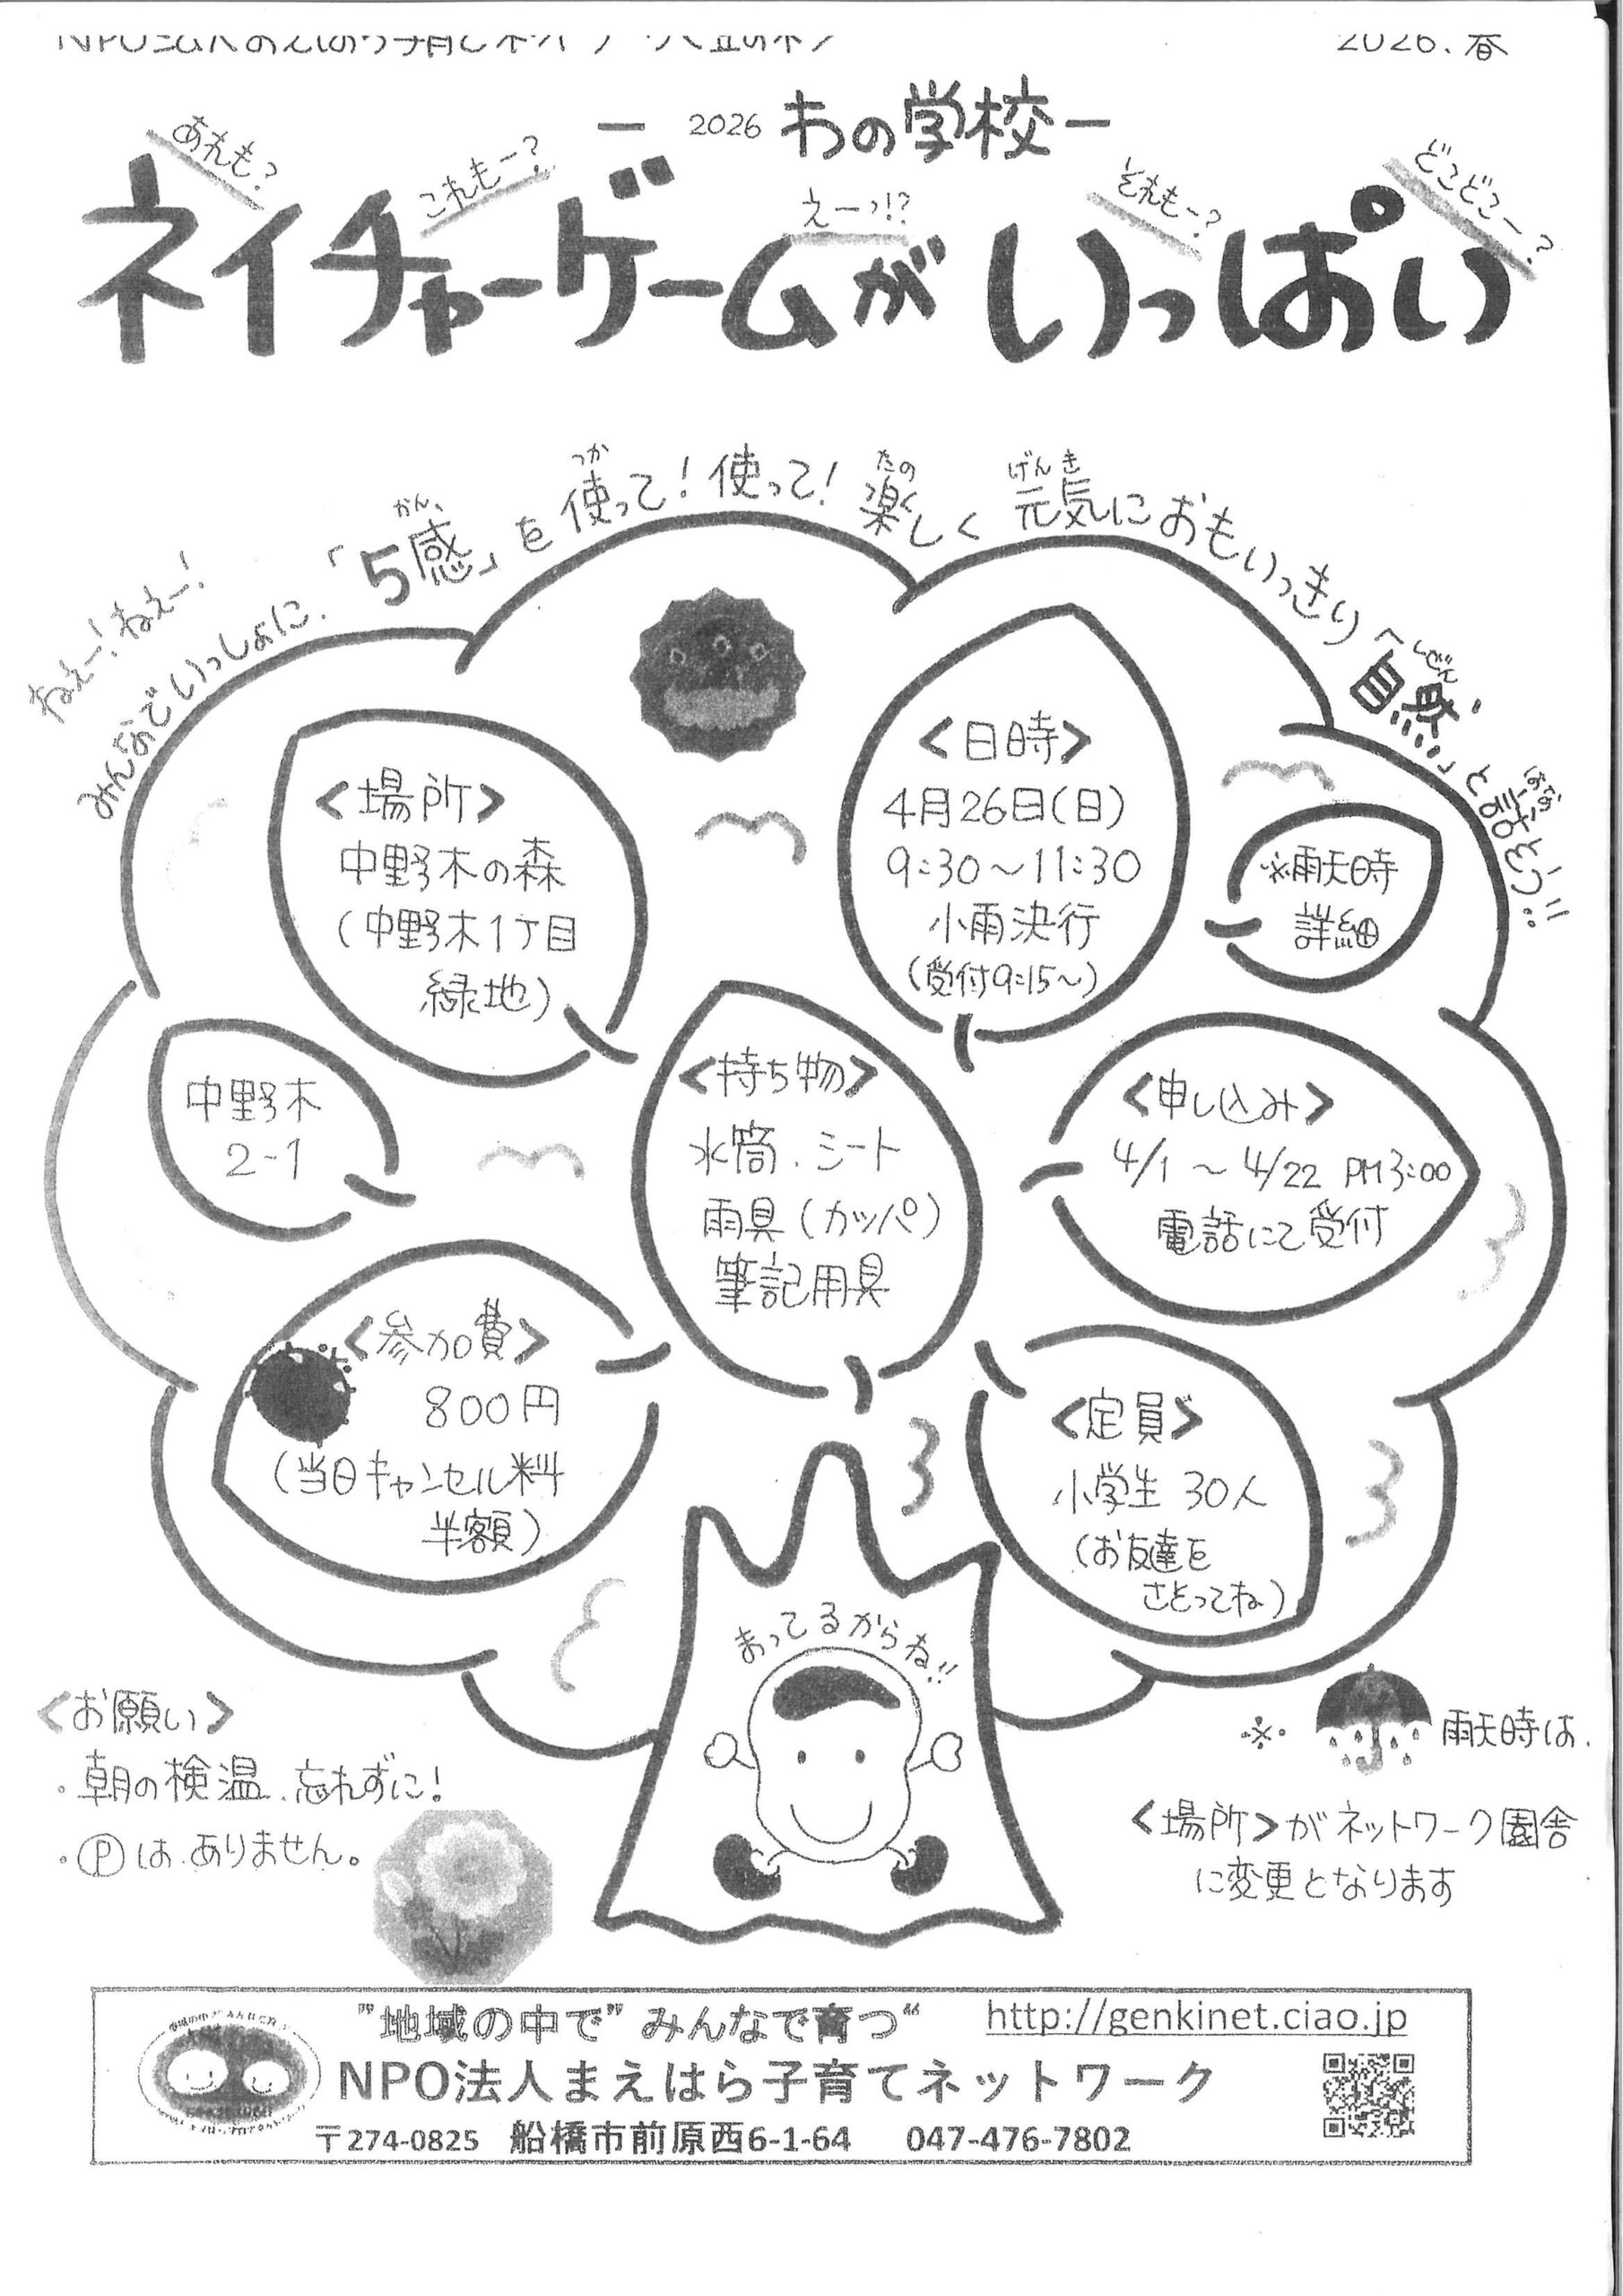 2026.春
ー 2026 わの学校 ー
あれも?
これもー?
えーっ!?
それもー?
どこどこー?
ネイチャーゲームがいっぱい
ねぇー!ねぇー!
みんなでいっしょに.「5感」を使って!使って!楽しく元気におもいっきり「自然」と話そう!!
かん
つか
たの
げんき
しぜん
はな
<場所>
中野木の森
(中野木1丁目
緑地)
<日時>
4月26日(日)
9:30~11:30
小雨決行
(受付9:15~)
※雨天時
詳細
中野木
2-1
<持ち物>
水筒.シート
雨具(カッパ)
筆記用具
<申し込み>
4/1 ~ 4/22 PM3:00
電話にて受付
<参加費>
800円
(当日キャンセル料
半額)
<定員>
小学生 30人
(お友達を
さそってね)
まってるからね!!
<お願い>
・朝の検温.忘れずに!
・Ⓟは.ありません。
※・雨天時は.
<場所>がネットワーク園舎
に変更となります
"地域の中で" みんなで育つ"
http://genkinet.ciao.jp
NPO法人まえはら子育てネットワーク
〒274-0825 船橋市前原西6-1-64 047-476-7802